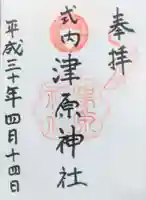 奉拝
式内津原神社
平成三十年四月十四日